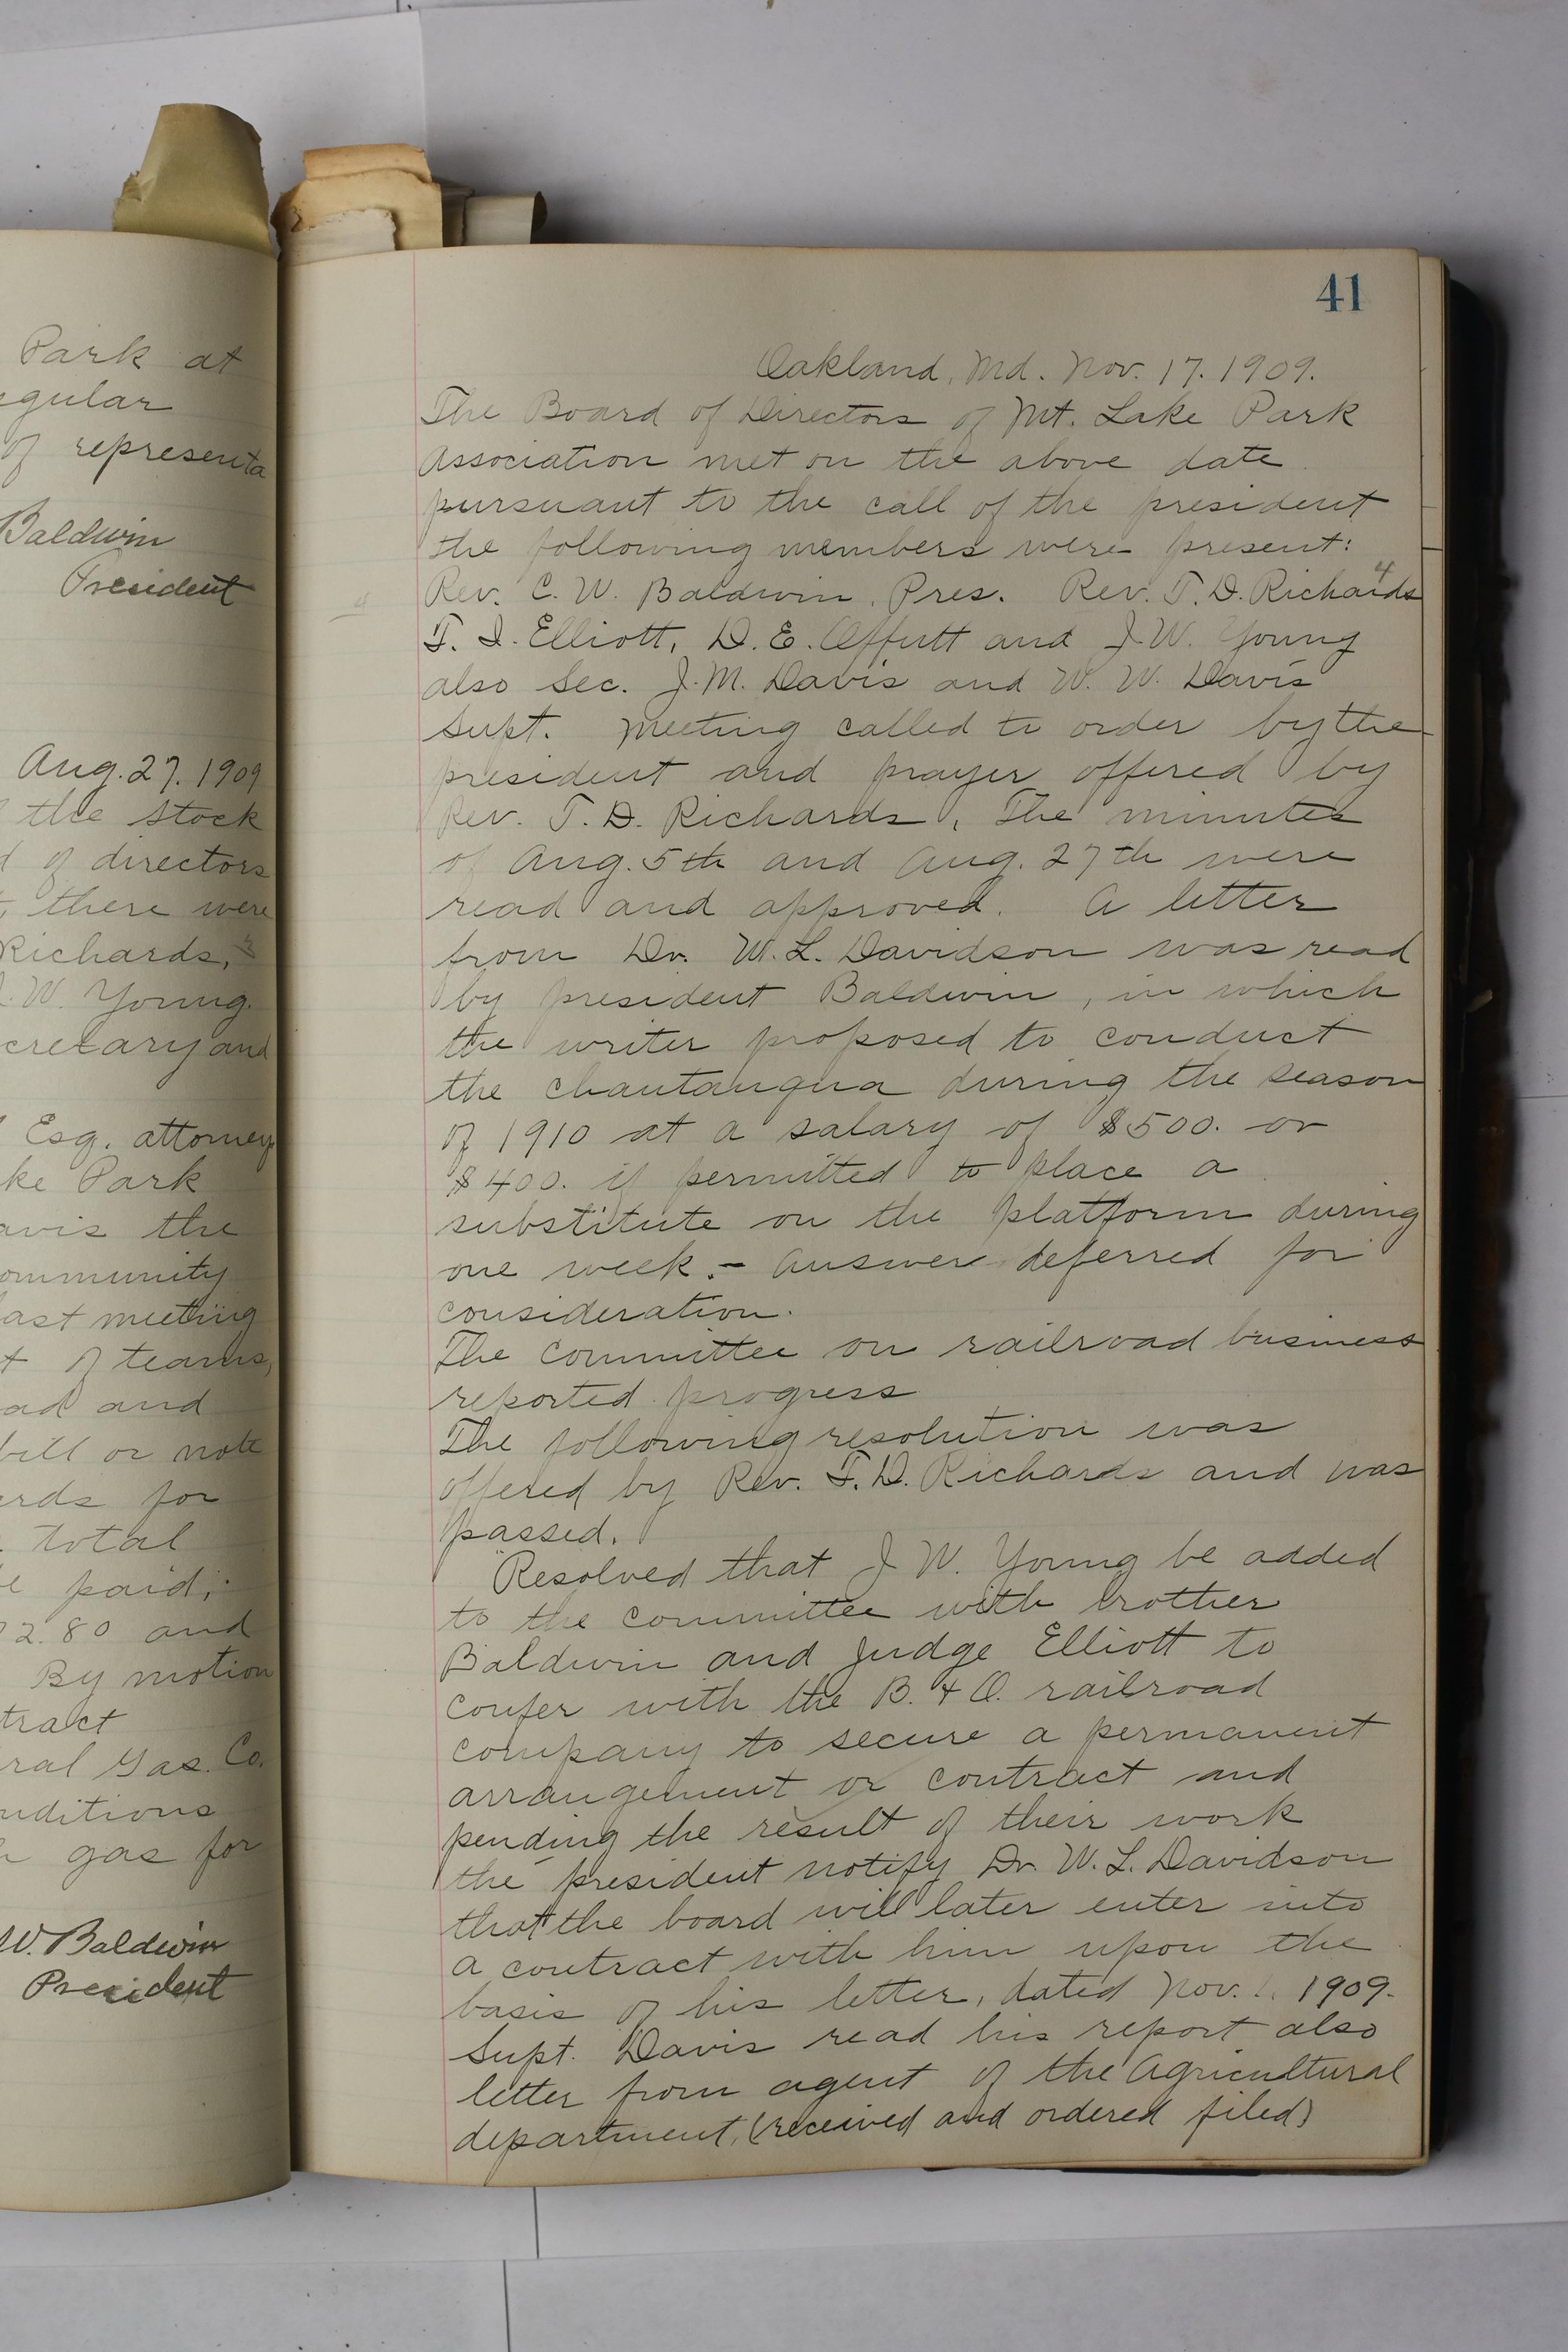 Park at
egular
of representa
Baldwin
President
Aug. 27. 1909
the stock
of directors
there were
Richards,
J. W. Young.
cretary and
Esq. attorney
ke Park
avis the
ommunity
last meeting
t of teams,
ad and
bill or note
ards for
total
e paid;
2.80 and
By motion
tract
ral Gas. Co.
nditions
gas for
W. Baldwin
President
41
Oakland, Md. Nov. 17. 1909.
The Board of Directors of Mt. Lake Park
Association met on the above date
pursuant to the call of the president
the following members were present:
4
Rev. C. W. Baldwin, Pres. Rev. T. D. Richards
T. I. Elliott, D. E. Offutt and J. W. Young
also Sec. J. M. Davis and W. W. Davis
Supt. Meeting called to order by the
president and prayer offered by
Rev. T. D. Richards. The minutes
of Aug. 5th and Aug. 27th were
read and approved. A letter
from Dr. W. L. Davidson was read
by president Baldwin, in which
the writer proposed to conduct
the chautauqua during the season
of 1910 at a salary of $500. or
$400. if permitted to place a
substitute on the platform during
one week. - Answer deferred for
consideration.
The committee on railroad business
reported progress
The following resolution was
offered by Rev. T. D. Richards and was
passed.
Resolved that J W. Young be added
to the committee with brother
Baldwin and Judge Elliott to
confer with the B. & O. railroad
company to secure a permanent
arrangement or contract and
pending the result of their work
the president notify Dr. W. L. Davidson
that the board will later enter into
a contract with him upon the
basis of his letter, dated Nov. 1. 1909.
Supt. Davis read his report also
letter from agent of the Agricultural
department, (received and ordered filed)